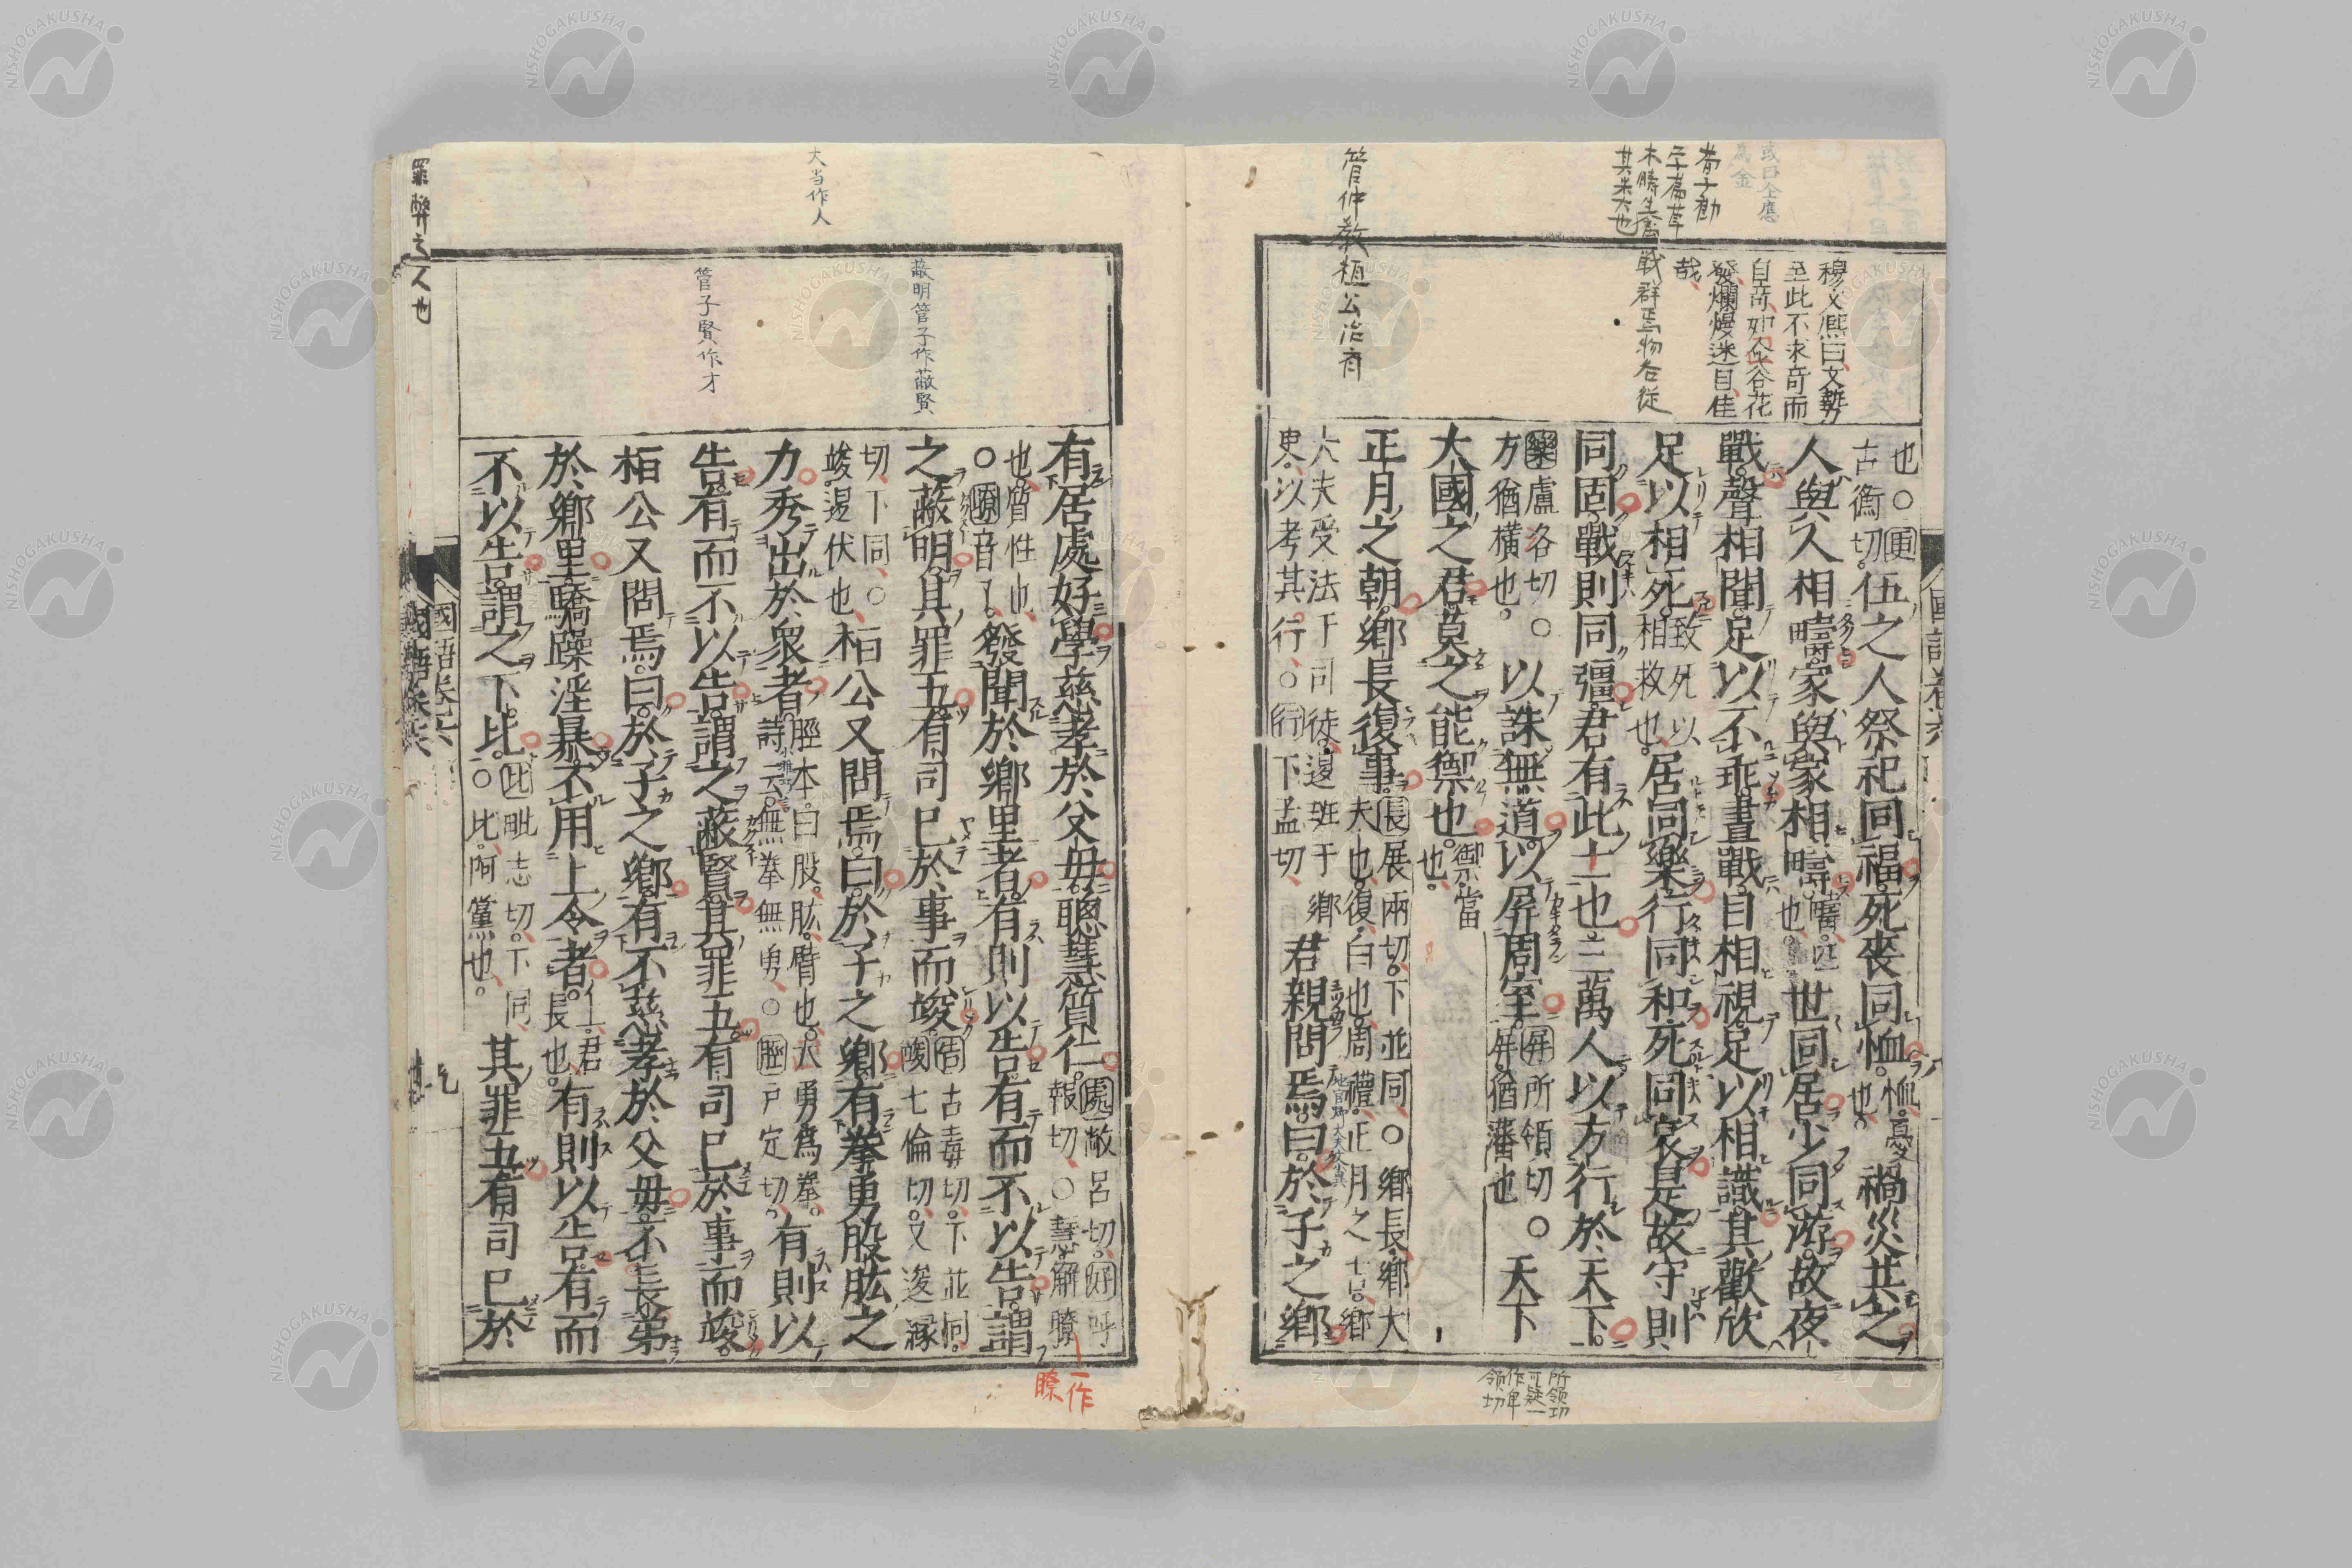 也○更
古衡切。伍之人祭祀同福。死喪同恤。恤。憂也。禍災共之
人與人相疇。家與家相疇。疇。匹也。世同居。少同游。故夜
戰。聲相聞。足以不乖。晝戰。目相視。足以相識。其歡欣
足以相死。致死以相救也。居同樂。行同和。死同哀。是故守則
同固。戰則同彊。君有此士也。三萬人。以方行於天下。
樂盧各切。○方猶橫也。以誅無道。以屏周室。屏所領切。○屏。猶藩也天下
大國之君。莫之能禦也。禦。當也。
正月之朝。鄉長復事。長展兩切。下並同、○鄉長。鄉大夫也。復。白也。周禮。正月之吉。鄉
大夫受法于司徒。退班于鄉
吏。以考其行、○行下孟切、君親問焉。曰。於子之鄉
穆文熙曰文勢
至此不求奇而
自奇如金谷花
發爛熳迷目佳
哉
或曰仝應
為金
管仲教桓公治齊
所領切
可疑一
作卑
領切
國語卷六
有居處好學。慈孝於父毋。聰慧質仁。處敞呂切。好呼報切、○慧。解瞭
也。質性也、
○瞭音了。發聞於鄉里者。有則以告。有而不以告。謂
之蔽明。其罪五。有司已於事而竣。告古毒切。下並同。竣七倫切。又逡緣
切、下同、○
竣。退伏也、桓公又問焉。曰。於子之鄉。有拳勇股肱之
力。秀出於衆者。脛本曰股。肱。臂也。大勇爲拳。詩云。無拳無勇。○脛戶定切、有則以
告。有而不以告。謂之蔽賢。其罪五。有司已於事而竣。
桓公又問焉。曰。於子之鄉。有不慈孝於父毋。不長弟
於鄉里。驕躁淫暴。不用上令者。上。君長也。有則以告。有而
不以告。謂之下比。比毗志切。下同、○比。阿黨也、。其罪五。有司已於
蔽明管子作蔽賢
管子賢作才
大当作人
一作
瞭
罪弊之人也
國語卷六